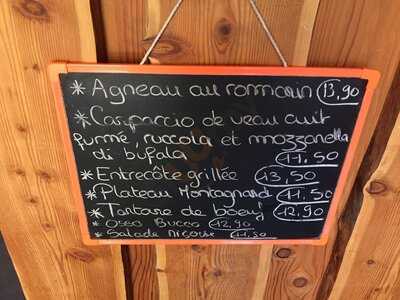 * Agneau au romarin 13,90
* Carparcio de veau cuit
fumé, ruccola et mozzarella
di bufala 11.50
* Entrecôte grillée 13,50
* Plateau Montagnard 11,50
* Tartare de boeuf 12,90
* Osso Bucco 12,90
* Salade Niçoise 11,50